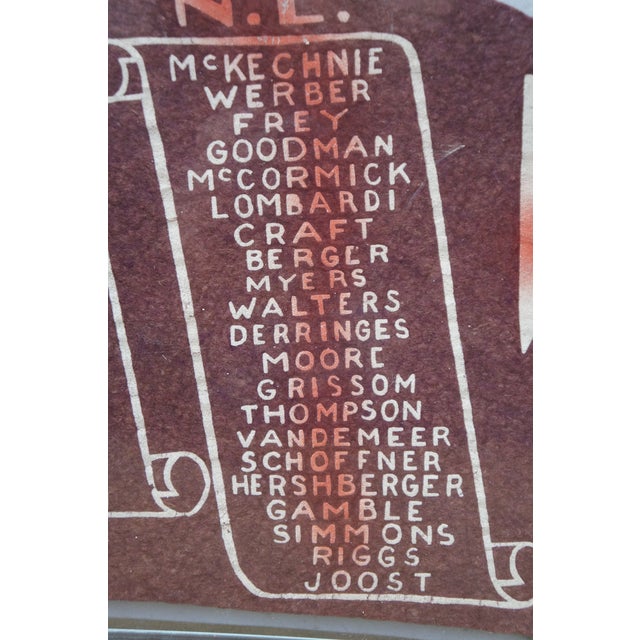 N.L.
McKECHNIE
WERBER
FREY
GOODMAN
McCORMICK
LOMBARDI
CRAFT
BERGER
MYERS
WALTERS
DERRINGES
MOORE
GRISSOM
THOMPSON
VANDEMEER
SCHOFFNER
HERSHBERGER
GAMBLE
SIMMONS
RIGGS
JOOST